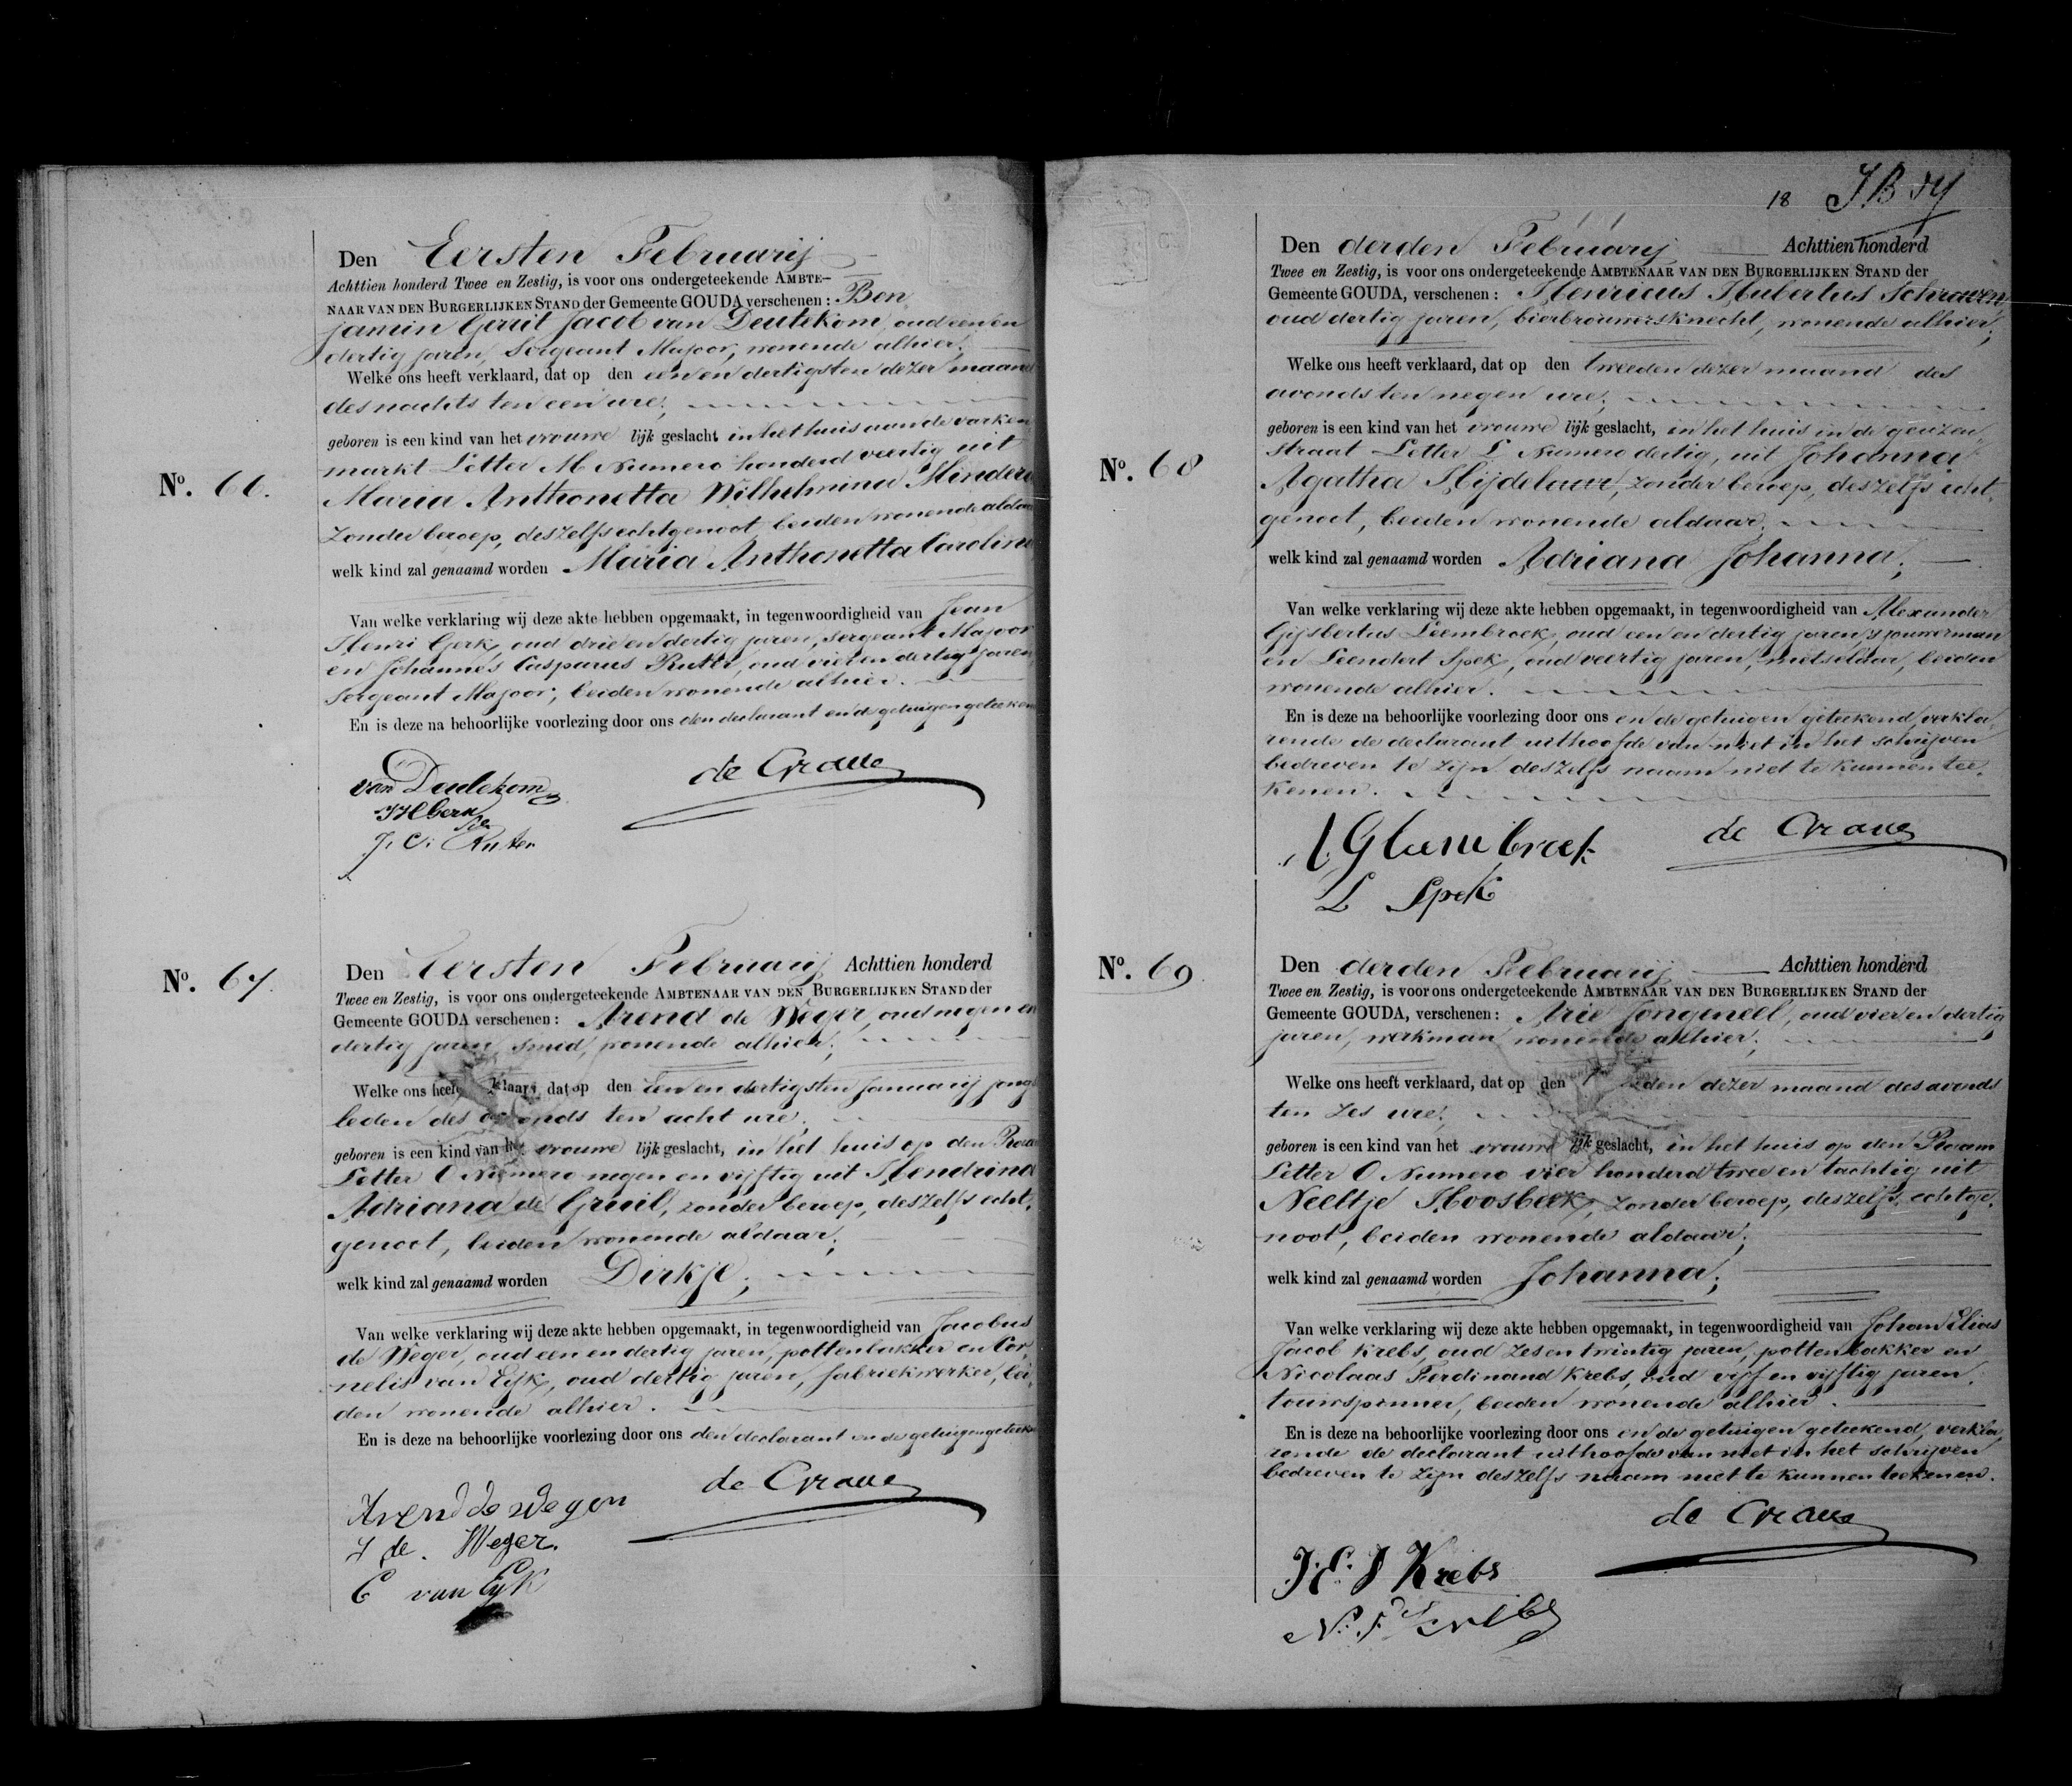 Nº. 66.
Den Eersten Februarij
Achttien honderd Twee en Zestig, is voor ons ondergeteekende AMBTE-
NAAR VAN DEN BURGERLIJKEN STAND der Gemeente GOUDA verschenen: Ben
jamin Gerrit Jacob van Deutekom, oud een en
dertig jaren, Sergeant Majoor, wonende alhier;
Welke ons heeft verklaard, dat op den een en dertigsten dezer maand
des nachts ten een ure;
geboren is een kind van het vrouwe lijk geslacht, in het huis aan de varken
markt Letter M Numero honderd veertig uit
Maria Anthonetta Wilhelmina
zonder beroep, deszelfs echtgenoot, beiden wonende aldaar
welk kind zal genaamd worden Maria Anthonetta Carolina
Van welke verklaring wij deze akte hebben opgemaakt, in tegenwoordigheid van Jean
Henri Gerk, oud drie en dertig jaren, Sergeant Majoor
en Johannes Casparus Rutte, oud vier en dertig jaren
Sergeant Majoor, beiden wonende alhier.
En is deze na behoorlijke voorlezing door ons den declarant en de getuigen geteekend
van Deutekom
de Graue
J. C. Rutten
Nº. 67.
Den Eersten Februarij Achttien honderd
Twee en Zestig, is voor ons ondergeteekende AMBTENAAR VAN DEN BURGERLIJKEN STAND der
Gemeente GOUDA verschenen: Arend de Weger, oud negen en
dertig jaren, smid, wonende alhier;
Welke ons heeft verklaard, dat op den een en dertigsten Januarij jong
leden des avonds ten acht ure;
geboren is een kind van het vrouwe lijk geslacht, in het huis op den Raam
Letter O Numero negen en vijftig uit Hendrina
Adriana de Gruil, zonder beroep, deszelfs echt-
genoot, beiden wonende aldaar;
welk kind zal genaamd worden Dirkje;
Van welke verklaring wij deze akte hebben opgemaakt, in tegenwoordigheid van Jacobus
de Weger, oud een en dertig jaren, pottenbakker en Cor-
nelis van Eijk, oud dertig jaren, fabriekwerker, bei-
den wonende alhier.
En is deze na behoorlijke voorlezing door ons den declarant en de getuigen geteekend
Arend de Weger
de Graue
J de Weger.
C van Eyk
18
Nº. 68
Den derden Februarij Achttien honderd
Twee en Zestig, is voor ons ondergeteekende AMBTENAAR VAN DEN BURGERLIJKEN STAND der
Gemeente GOUDA, verschenen: Henricus Hubertus Schraven
oud dertig jaren, bierbrouwersknecht, wonende alhier;
Welke ons heeft verklaard, dat op den tweeden dezer maand des
avonds ten negen ure;
geboren is een kind van het vrouwe lijk geslacht, in het huis in de geuzen-
straat Letter L Numero dertig, uit Johanna
Agatha Hijdelaar, zonder beroep, deszelfs echt-
genoot, beiden wonende aldaar;
welk kind zal genaamd worden Adriana Johanna;
Van welke verklaring wij deze akte hebben opgemaakt, in tegenwoordigheid van Alexander
Gijsbertus Leembroek, oud een en dertig jaren, sjouwerman
en Leendert Spek, oud veertig jaren, metselaar, beiden
wonende alhier.
En is deze na behoorlijke voorlezing door ons en de getuigen geteekend, verkla-
rende de declarant uithoofde van niet in het schrijven
bedreven te zijn deszelfs naam niet te kunnen tee-
kenen.
A G Leembroek
de Graue
L Spek
Nº. 69
Den derden Februarij Achttien honderd
Twee en Zestig, is voor ons ondergeteekende AMBTENAAR VAN DEN BURGERLIJKEN STAND der
Gemeente GOUDA, verschenen: Arie Jongeneel, oud vier en dertig
jaren, werkman wonende alhier;
Welke ons heeft verklaard, dat op den dezer maand des avonds
ten zes ure;
geboren is een kind van het vrouwe lijk geslacht, in het huis op den Raam
Letter O Numero vier honderd twee en tachtig uit
Neeltje Hoosbeek, zonder beroep, deszelfs echtge-
noot, beiden wonende aldaar;
welk kind zal genaamd worden Johanna;
Van welke verklaring wij deze akte hebben opgemaakt, in tegenwoordigheid van Johan Elias
Jacob Krebs, oud zes en twintig jaren, pottenbakker en
Nicolaas Ferdinand Krebs, oud vijf en vijftig jaren,
touwspinner, beiden wonende alhier.
En is deze na behoorlijke voorlezing door ons en de getuigen geteekend, verkla-
rende de declarant uithoofde van niet in het schrijven
bedreven te zijn deszelfs naam niet te kunnen teekenen.
de Graue
J. E. J Krebs
N. F Krebs